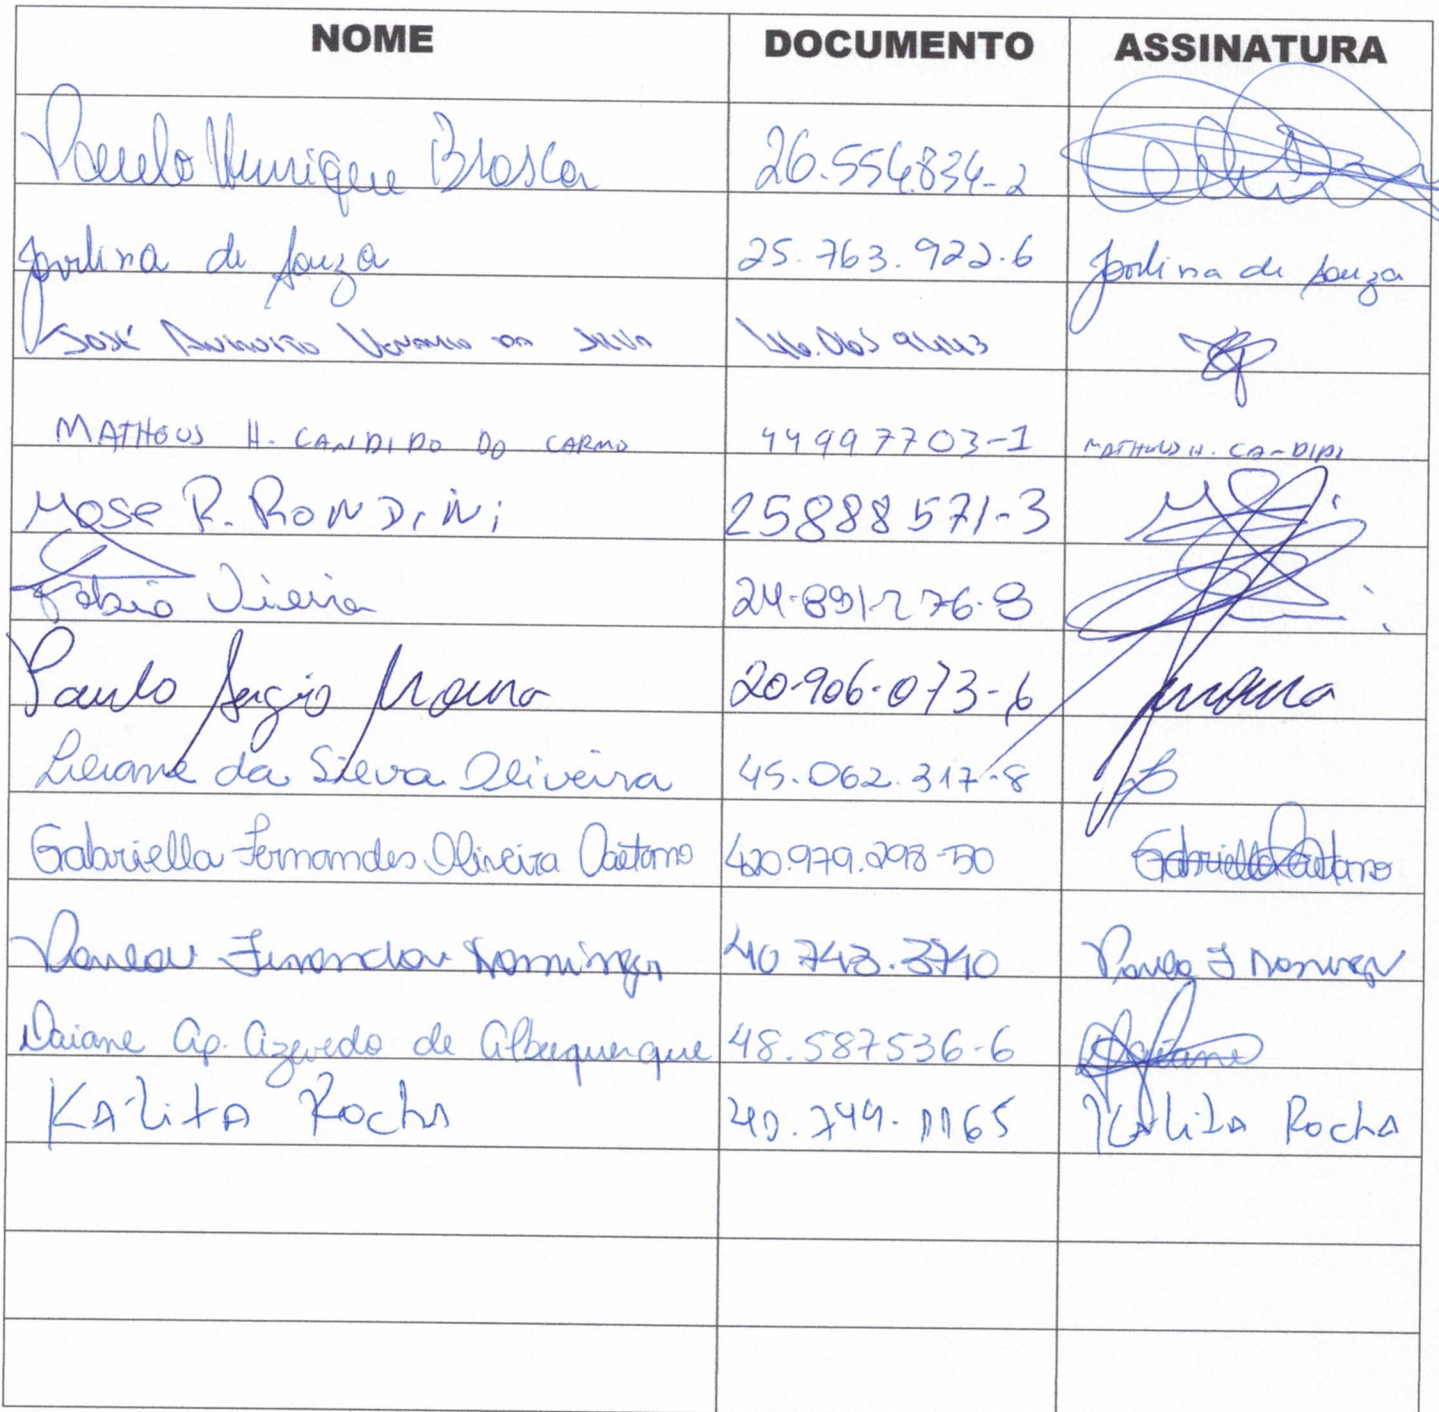 NOME DOCUMENTO ASSINATURA
Paulo Henrique Brosca 26.554.834-2
Jovelina de Souza 25.763.922.6 Jovelina de Souza
José da Silva
MATHEUS H. CANDIDO DO CARMO 44997703-1 MATHEUS H. CANDIDO
Mose R. RONDiNi 25888571-3
Fabio Vieira 24-891-276-8
Paulo Sergio Moura 20-906-073-6 Moura
Liliane da Silva Oliveira 45.062.317-8
Gabriella Fernandes Oliveira Caetano 420.979.298-50 Gabriella Caetano
Fernando 40 743.3740
Daiane Ap. Azevedo de Albuquerque 48.587536-6 Daiane
KAlitA RochA 40.744.1165 KAlitA RochA